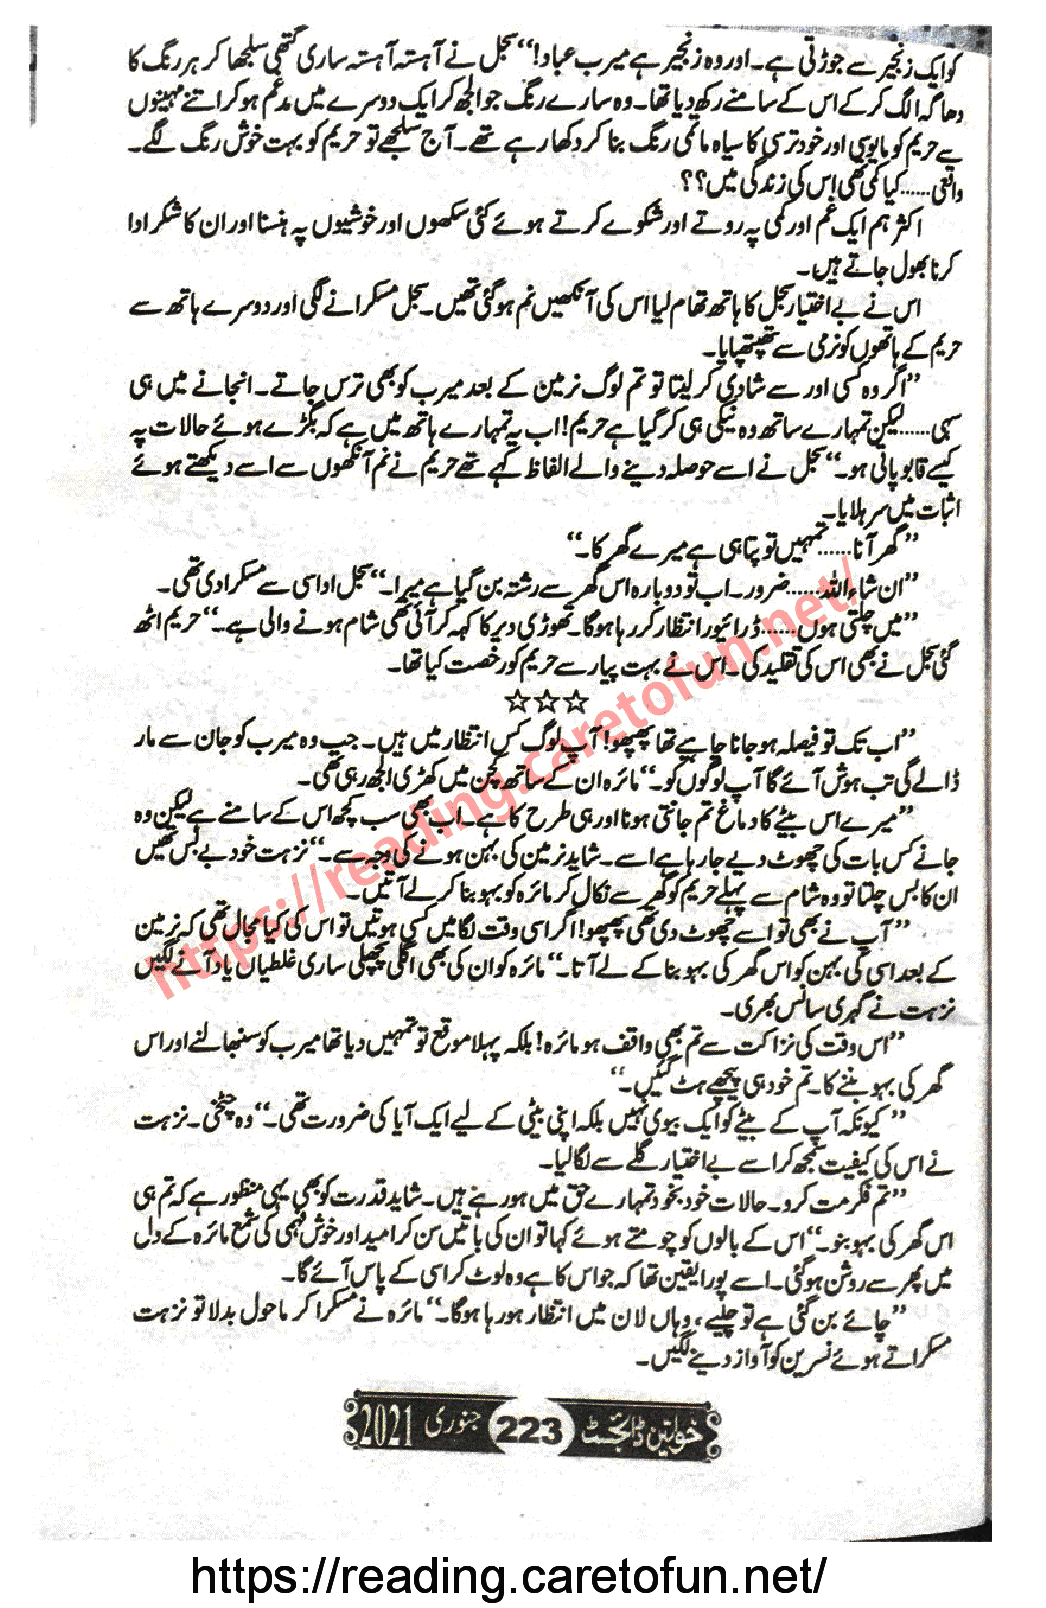 کو ایک زنجیر سے جوڑتی ہے۔ اور وہ زنجیر ہے میرب عباد!“ سجل نے آہستہ آہستہ ساری گتھی سلجھا کر ہر رنگ کا
دھاگہ الگ کر کے اس کے سامنے رکھ دیا تھا۔ وہ سارے رنگ جو الجھ کر ایک دوسرے میں مدغم ہو کر اتنے مہینوں
سے حریم کو مایوسی اور خود ترسی کا سیاہ ماتمی رنگ بنا کر دکھا رہے تھے۔ آج سلجھے تو حریم کو بہت خوش رنگ لگے۔
واقعی...... کیا کمی تھی اس کی زندگی میں؟؟
اکثر ہم ایک غم اور کمی پہ روتے اور شکوے کرتے ہوئے کئی سکھوں اور خوشیوں پہ ہنسنا اور ان کا شکر ادا
کرنا بھول جاتے ہیں۔
اس نے بے اختیار سجل کا ہاتھ تھام لیا اس کی آنکھیں نم ہو گئی تھیں۔ سجل مسکرانے لگی اور دوسرے ہاتھ سے
حریم کے ہاتھوں کو نرمی سے تھپتھپایا۔
”اگر وہ کسی اور سے شادی کر لیتا تو تم لوگ نرمین کے بعد میرب کو بھی ترس جاتے۔ انجانے میں ہی
سہی...... لیکن تمہارے ساتھ وہ نیکی ہی کر گیا ہے حریم! اب یہ تمہارے ہاتھ میں ہے کہ بگڑے ہوئے حالات پہ
کیسے قابو پاتی ہو۔“ سجل نے اسے حوصلہ دینے والے الفاظ کہے تھے حریم نے نم آنکھوں سے اسے دیکھتے ہوئے
اثبات میں سر ہلایا۔
”گھر آنا...... تمہیں تو پتا ہی ہے میرے گھر کا۔“
”ان شاء اللہ...... ضرور۔ اب تو دوبارہ اس گھر سے رشتہ بن گیا ہے میرا۔“ سجل اداسی سے مسکرا دی تھی۔
”میں چلتی ہوں...... ڈرائیور انتظار کر رہا ہوگا۔ تھوڑی دیر کا کہہ کر آئی تھی شام ہونے والی ہے۔“ حریم اٹھ
گئی سجل نے بھی اس کی تقلید کی۔ اس نے بہت پیار سے حریم کو رخصت کیا تھا۔
☆☆☆
”اب تک تو فیصلہ ہو جانا چاہیے تھا پھپھو! آپ لوگ کس انتظار میں ہیں۔ جب وہ میرب کو جان سے مار
ڈالے گی تب ہوش آئے گا آپ لوگوں کو۔“ مائرہ ان کے ساتھ کچن میں کھڑی الجھ رہی تھی۔
”میرے اس بیٹے کا دماغ تم جانتی ہو نا اور ہی طرح کا ہے۔ اب بھی سب کچھ اس کے سامنے ہے لیکن وہ
جانے کس بات کی چھوٹ دیے جا رہا ہے اسے۔ شاید نرمین کی بہن ہونے کی وجہ سے۔“ نزہت خود بے بس تھیں
ان کا بس چلتا تو وہ شام سے پہلے حریم کو گھر سے نکال کر مائرہ کو بہو بنا کر لے آتیں۔
”آپ نے بھی تو اسے چھوٹ دی تھی پھپھو! اگر اسی وقت لگامیں کسی ہوتیں تو اس کی کیا مجال تھی کہ نرمین
کے بعد اسی کی بہن کو اس گھر کی بہو بنا کے لے آتا۔“ مائرہ کو ان کی بھی اگلی پچھلی ساری غلطیاں یاد آنے لگیں
نزہت نے گہری سانس بھری۔
”اس وقت کی نزاکت سے تم بھی واقف ہو مائرہ! بلکہ پہلا موقع تو تمہیں دیا تھا میرب کو سنبھالنے اور اس
گھر کی بہو بننے کا۔ تم خود ہی پیچھے ہٹ گئیں۔“
”کیونکہ آپ کے بیٹے کو ایک بیوی نہیں بلکہ اپنی بیٹی کے لیے ایک آیا کی ضرورت تھی۔“ وہ چٹخی۔ نزہت
نے اس کی کیفیت سمجھ کر اسے بے اختیار گلے سے لگا لیا۔
”تم فکر مت کرو۔ حالات خود بخود تمہارے حق میں ہو رہے ہیں۔ شاید قدرت کو بھی یہی منظور ہے کہ تم ہی
اس گھر کی بہو بنو۔“ اس کے بالوں کو چومتے ہوئے کہا تو ان کی باتیں سن کر امید اور خوش فہمی کی شمع مائرہ کے دل
میں پھر سے روشن ہو گئی۔ اسے پورا یقین تھا کہ جو اس کا ہے وہ لوٹ کر اسی کے پاس آئے گا۔
”چائے بن گئی ہے تو چلیے، وہاں لان میں انتظار ہو رہا ہوگا۔“ مائرہ نے مسکرا کر ماحول بدلا تو نزہت
مسکراتے ہوئے نسرین کو آواز دینے لگیں۔
خواتین ڈائجسٹ 223 جنوری 2021
https://reading.caretofun.net/
https://reading.caretofun.net/